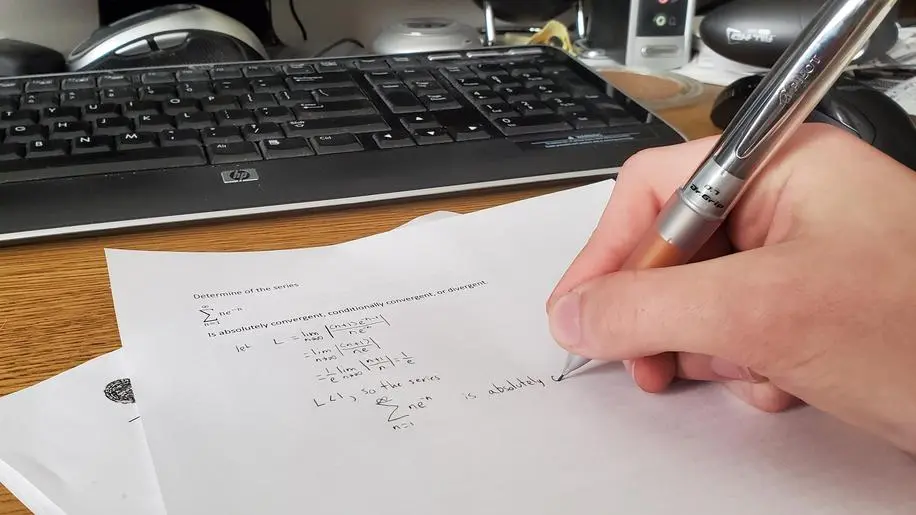 hp
PILOT
0.7
Dr.Grip
Determine of the series
∞
∑ ne⁻ⁿ
n=1
Is absolutely convergent, conditionally convergent, or divergent.
let L = lim n→∞ |(n+1)e⁻ⁿ⁻¹ / ne⁻ⁿ|
= lim n→∞ |(n+1) / ne|
= 1/e lim n→∞ |n+1 / n| = 1/e
L<1, so the series
∞
∑ ne⁻ⁿ is absolutely c
n=1